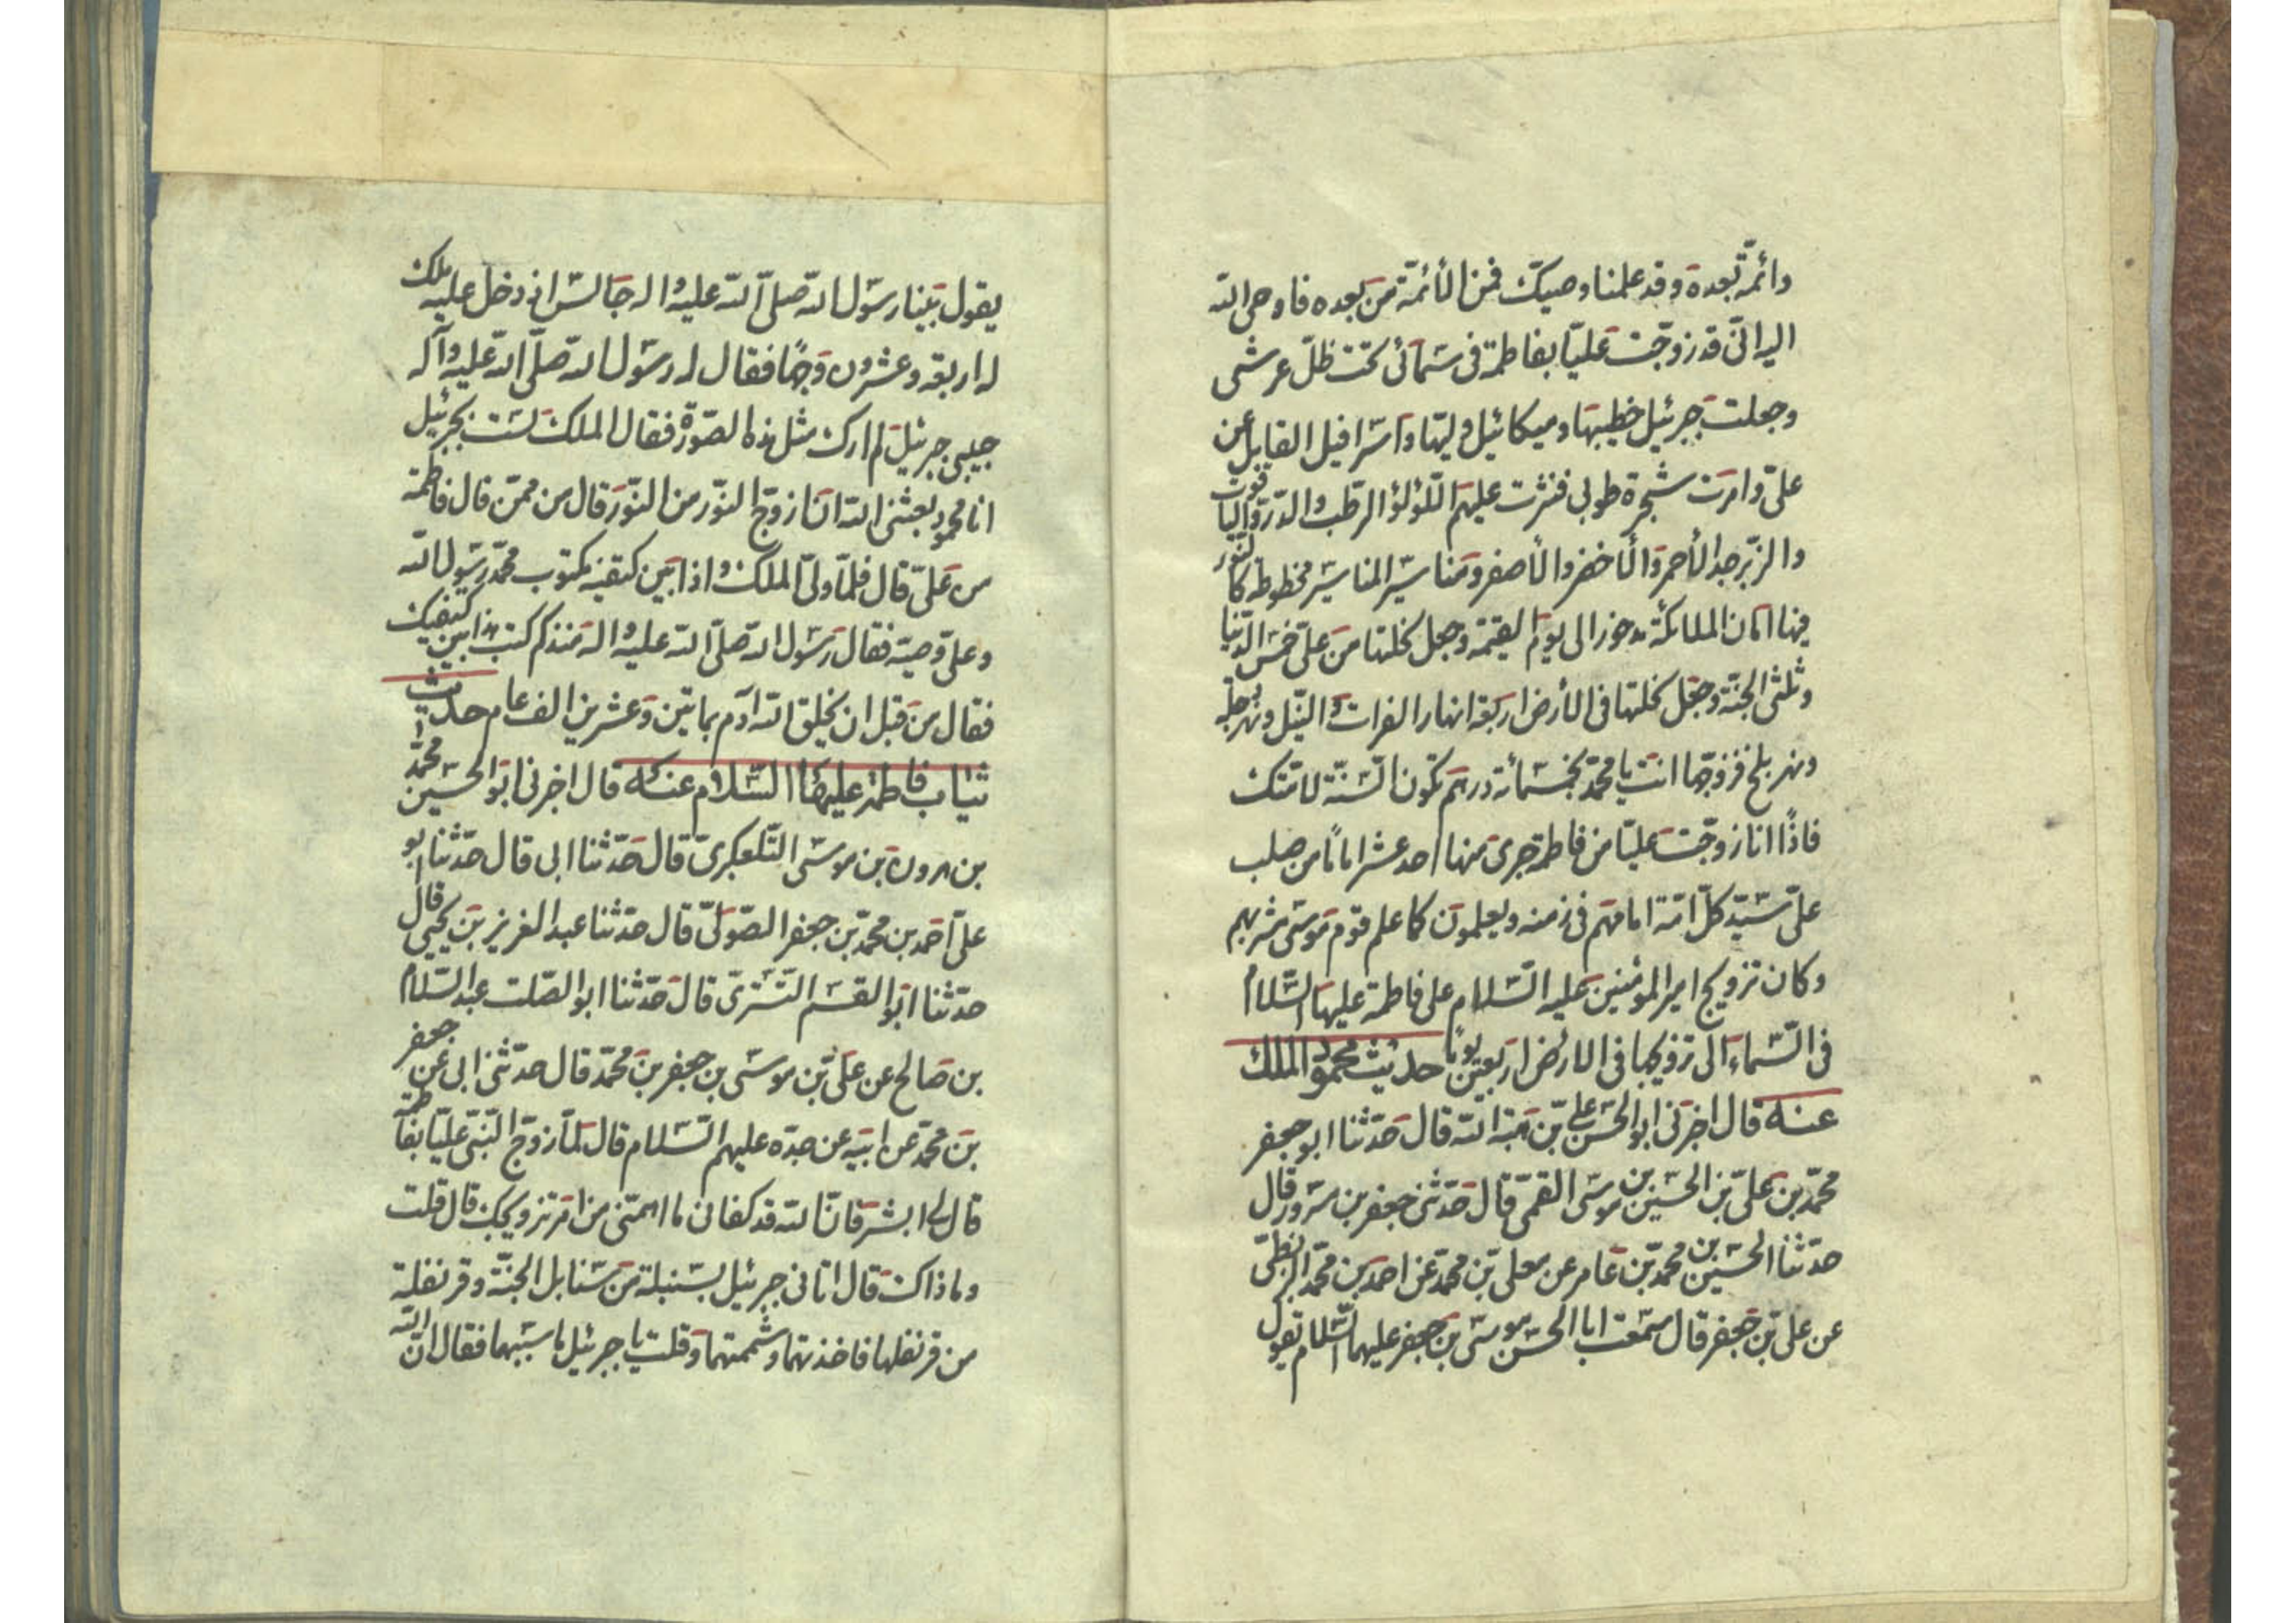 وائمّة بعده وقد علمنا وصيك فمن الأئمّة من بعده فاوحى الله
اليه انّى قد زوّجت عليّا بفاطمة فى سمائى تحت ظلّ عرشى
وجعلت جبرئيل خطيبها وميكائيل وليها واسرافيل القابل عن
علىّ وامرت شجرة طوبى فنثرت عليهم اللّؤلؤ الرّطب والدّر واليا قوت
والزّبرجد الأحمر والأخضر والأصفر ومناسير المناسير مخطوطة كا لنّور
فيها امان الملائكة مدخور الى يوم القيمة وجعل نحلتها من علىّ خمس الدّنيا
وثلثى الجنّة وجعل نحلتها فى الأرض اربعة انهار الفرات والنّيل ونهر دجلة
ونهر بلخ فزوّجها انت يا محمّد بخمسمائة درهم تكون السّنّة لامتك
فاذا انا زوّجت عليّا من فاطمة جرى منها احد عشر اماما من صلب
علىّ سيّد كلّ امّة امامهم فى زمنه ويعلمون كما علم قوم موسى مشربهم
وكان تزويج امير المؤمنين عليه السّلام على فاطمة عليها السّلام
فى السّماء الى تزويجها فى الارض اربعين يوما حديث محمود الملك
عنه قال اخبرنى ابو الحسن علىّ بن هبة الله قال حدّثنا ابو جعفر
محمّد بن علىّ بن الحسين بن موسى القمّى قال حدّثنى جعفر بن مسرور قال
حدّثنا الحسين بن محمّد بن عامر عن معلى بن محمّد عن احمد بن محمّد البزنطىّ
عن على بن جعفر قال سمعت ابا الحسن موسى بن جعفر عليهما السّلام يقول
يقول بينا رسول الله صلّى الله عليه واله جالس اذ دخل عليه ملك
له اربعة وعشرون وجها فقال له رسول الله صلّى الله عليه وآله
حبيبى جبرئيل لم ارك مثل هذه الصّورة فقال الملك لست بجبرئيل
انا محمود بعثنى الله ان ازوّج النّور من النّور قال من ممّن قال فاطمة
من علىّ قال فلمّا ولىّ الملك واذا بين كتفيه مكتوب محمّد رسول الله
وعلى وصيّه فقال رسول الله صلّى الله عليه واله منذكم كتب هذا بين كتفيك
فقال من قبل ان يخلق الله آدم بماتين وعشرين الف عام حديث
ثياب فاطمة عليها السّلام عنه قال اخبرنى ابو الحسين محمّد
بن هرون بن موسى التّلعكبرىّ قال حدّثنا ابى قال حدّثنا ابو
على احمد بن محمّد بن جعفر الصّولىّ قال حدّثنا عبد العزيز بن يحيى قال
حدّثنا ابو القسم التّسترى قال حدّثنا ابو الصّلت عبد السّلام
بن صالح عن علىّ بن موسى بن جعفر بن محمّد قال حدّثنى ابى عن جعفر
بن محمّد عن ابيه عن جدّه عليهم السّلام قال لمّا زوّج النّبىّ عليّا بفاطمة
قال لى ابشر فانّ الله قد كفانى ما اهمّنى من امر تزويجك قال قلت
وماذاك قال اتانى جبرئيل بسنبلة من سنابل الجنّة وقرنفلة
من قرنفلها فاخذتهما وشممتهما وقلت يا جبرئيل ما سببهما فقال انّ الله